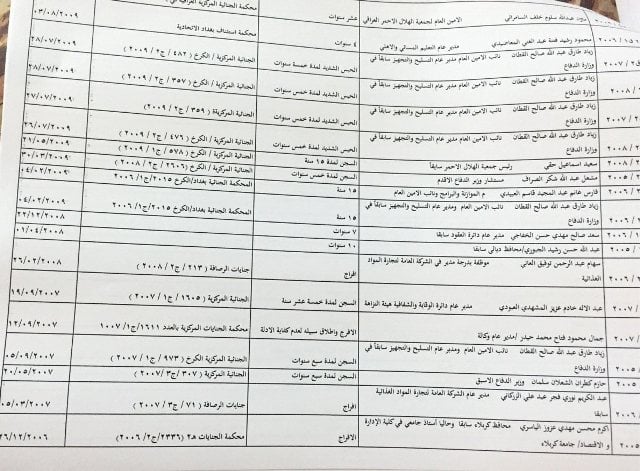 مزيد عبدالله سلوم خلف السامرائي الامين العام لجمعية الهلال الاحمر العراقي عشر سنوات محكمة الجنائية المركزية العراقية ٠٣/٠٨/٢٠٠٩
٢٠٠٦ / ١٥ محمود رشيد فضة عبد الغني المعاضيدي مدير عام التعليم المسائي والاهلي ٤ سنوات محكمة استئناف بغداد الاتحادية ٢٨/٠٧/٢٠٠٩
٢٠٠٧ زياد طارق عبد الله صالح القطان نائب الامين العام ومدير عام التسليح والتجهيز سابقاً في
وزارة الدفاع الحبس الشديد لمدة خمس سنوات الجنائية المركزية / الكرخ ( ٤٨٢ / ج٢ / ٢٠٠٩ ) ٢٨/٠٧/٢٠٠٩
٢٠٠٨ زياد طارق عبد الله صالح القطان نائب الامين العام ومدير عام التسليح والتجهيز سابقاً في
وزارة الدفاع الحبس الشديد لمدة خمس سنوات الجنائية المركزية / الكرخ ( ٣٥٧ / ج٢ / ٢٠٠٩ ) ٢٨/٠٧/٢٠٠٩
٢٠٠٧ زياد طارق عبد الله صالح القطان نائب الامين العام ومدير عام التسليح والتجهيز سابقاً في
وزارة الدفاع الحبس الشديد لمدة خمس سنوات الجنائية المركزية ( ٣٥٩ / ج٢ / ٢٠٠٩ ) ٢٧/٠٧/٢٠٠٩
٢٠٠٨ زياد طارق عبد الله صالح القطان نائب الامين العام ومدير عام التسليح والتجهيز سابقاً في
وزارة الدفاع الحبس الشديد لمدة خمس سنوات الجنائية المركزية / الكرخ ( ٤٧٦ / ج٢ / ٢٠٠٩ ) ٢٦/٠٧/٢٠٠٩
٢٠٠٨ سعيد اسماعيل حقي رئيس جمعية الهلال الاحمر سابقا السجن لمدة ١٥ سنة الجنائية المركزية / الكرخ ( ٥٧٨ / ج١ / ٢٠٠٩ ) ٢١/٠٥/٢٠٠٩
٢٠٠٥ مشعل عبد الله شكر الصراف مستشار وزير الدفاع الاقدم السجن لمدة خمس سنوات الجنائية المركزية / الكرخ ( ٢٦٠٦ / ج٢ / ٢٠٠٨ ) ٣٠/٠٣/٢٠٠٩
٢٠٠٦ فارس غانم عبد المجيد قاسم العبيدي م الموازنة والبرامج ونائب الامين العام ١٥ سنة المحكمة الجنائية بغداد/الكرخ ٢٠١٥/ج١/٢٠٠٦ ٠٤/٠٢/٢٠٠٩
٢٠٠٦ زياد طارق عبد الله صالح القطان نائب الامين العام ومدير عام التسليح والتجهيز سابقاً في
وزارة الدفاع ١٥ سنة المحكمة الجنائية بغداد/الكرخ ٢٠١٥/ج١/٢٠٠٦ ٠٤/٠٢/٢٠٠٩
٢٠٠٦ سعد صالح مهدي حسن الخفاجي مدير عام دائرة العقود سابقا ٧ سنوات ٢٢/١٢/٢٠٠٨
عبد الله حسن رشيد الجبوري/محافظ ديالى سابقا ١٠ سنوات ٠١/٠٤/٢٠٠٨
سهام عبد الرحمن توفيق العاني موظفة بدرجة مدير في الشركة العامة لتجارة المواد
الغذائية افراج جنايات الرصافة ( ٢١٣ / ج٢ / ٢٠٠٨ ) ٢٦/٠٢/٢٠٠٨
٢٠٠٧ عبد الاله خادم عزيز المشهدي العبودي مدير عام دائرة الوقاية والشفافية هيئة النزاهة السجن لمدة خمسة عشر سنة الجنائية المركزية ( ١٦٠٥ / ج١ / ٢٠٠٧ ) ١٩/٠٩/٢٠٠٧
٢٠٠٧ جمال محمود فتاح محمد حيدر /مدير عام وكالة الافراج واطلاق سبيله لعدم كفاية الادلة محكمة الجنايات المركزية بالعدد ١٦١١/ج١/١٠٠٧ ١٢/٠٩/٢٠٠٧
٢٠٠٥ زياد طارق عبد الله صالح القطان نائب الامين العام ومدير عام التسليح والتجهيز سابقاً في
وزارة الدفاع السجن لمدة سبع سنوات الجنائية المركزية الكرخ ( ٩٧٣ / ج١ / ٢٠٠٧ ) ٠٥/٠٩/٢٠٠٧
٢٠٠٥ حازم كطران الشعلان سلمان وزير الدفاع الاسبق السجن لمدة سبع سنوات الجنائية المركزية ( ٣٠٧ / ج٣ / ٢٠٠٧ ) ٢٠/٠٥/٢٠٠٧
٢٠٠٦ عبد الكريم نوري فجر عبد علي الزركاني مدير عام الشركة العامة لتجارة المواد الغذائية
سابقا افراج جنايات الرصافة ( ٧١ / ج٣ / ٢٠٠٧ ) ٠٥/٠٣/٢٠٠٧
٢٠٠٥ اكرم محسن مهدي عزوز الياسري محافظ كربلاء سابقا وحاليا أستاذ جامعي في كلية الإدارة
و الاقتصاد/ جامعة كربلاء الافراج محكمة الجنايات هـ٢ (٢٣٣٦/ج٢/ ٢٠٠٦) ٢٦/١٢/٢٠٠٦